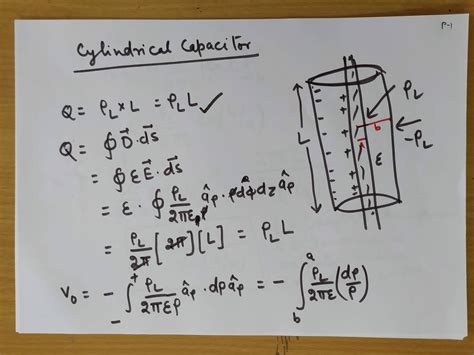 P-1
Cylindrical Capacitor
Q = ρ_L × L = ρ_L L ✓
Q = ∮ D⃗ · d⃗s
= ∮ ε E⃗ · d⃗s
= ε · ∮ ρ_L / 2περ â_ρ · ρdϕdz â_ρ
= ρ_L / 2π [2π] [L] = ρ_L L
V₀ = − ∫₋⁺ ρ_L / 2περ â_ρ · dρ â_ρ = − ∫_b^a ρ_L / 2πε (dρ / ρ)
L
ρ_L
b
−ρ_L
ε